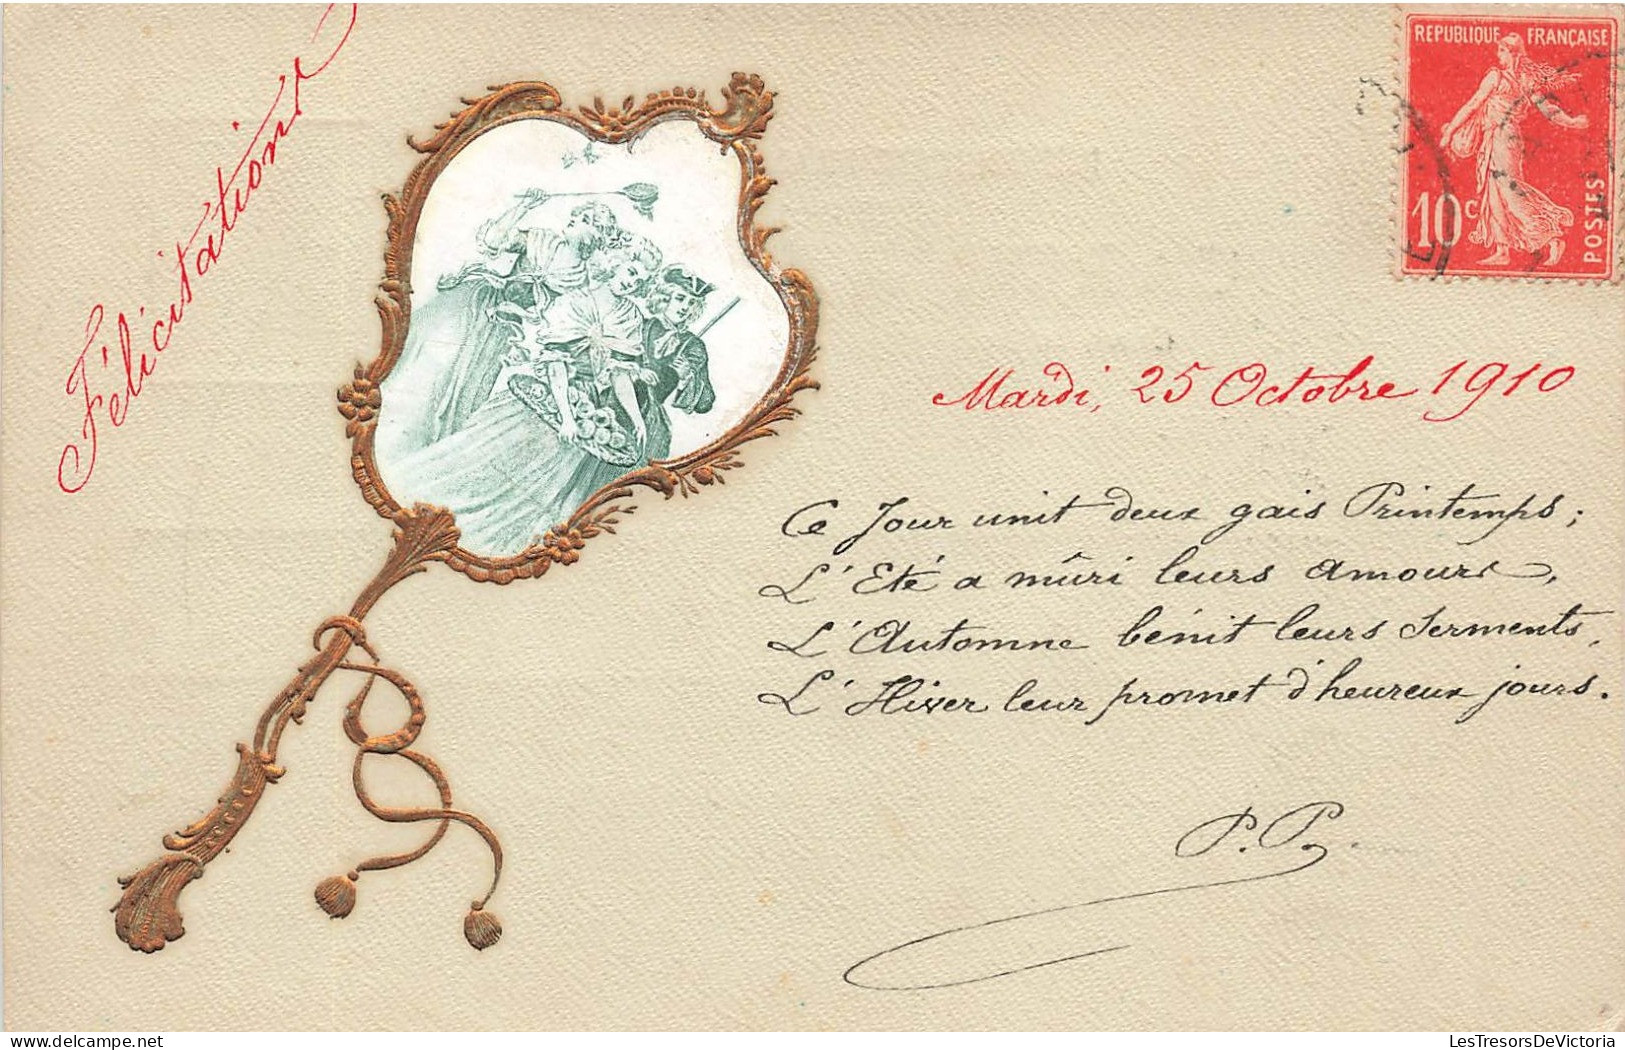 Félicitations
REPUBLIQUE FRANÇAISE
10c
POSTES
Mardi, 25 Octobre 1910
Ce Jour unit deux gais Printemps ;
L'Eté a mûri leurs amours,
L'Automne bénit leurs serments,
L'Hiver leur promet d'heureux jours.
P. P.
delcampe.net
LesTresorsDeVictoria